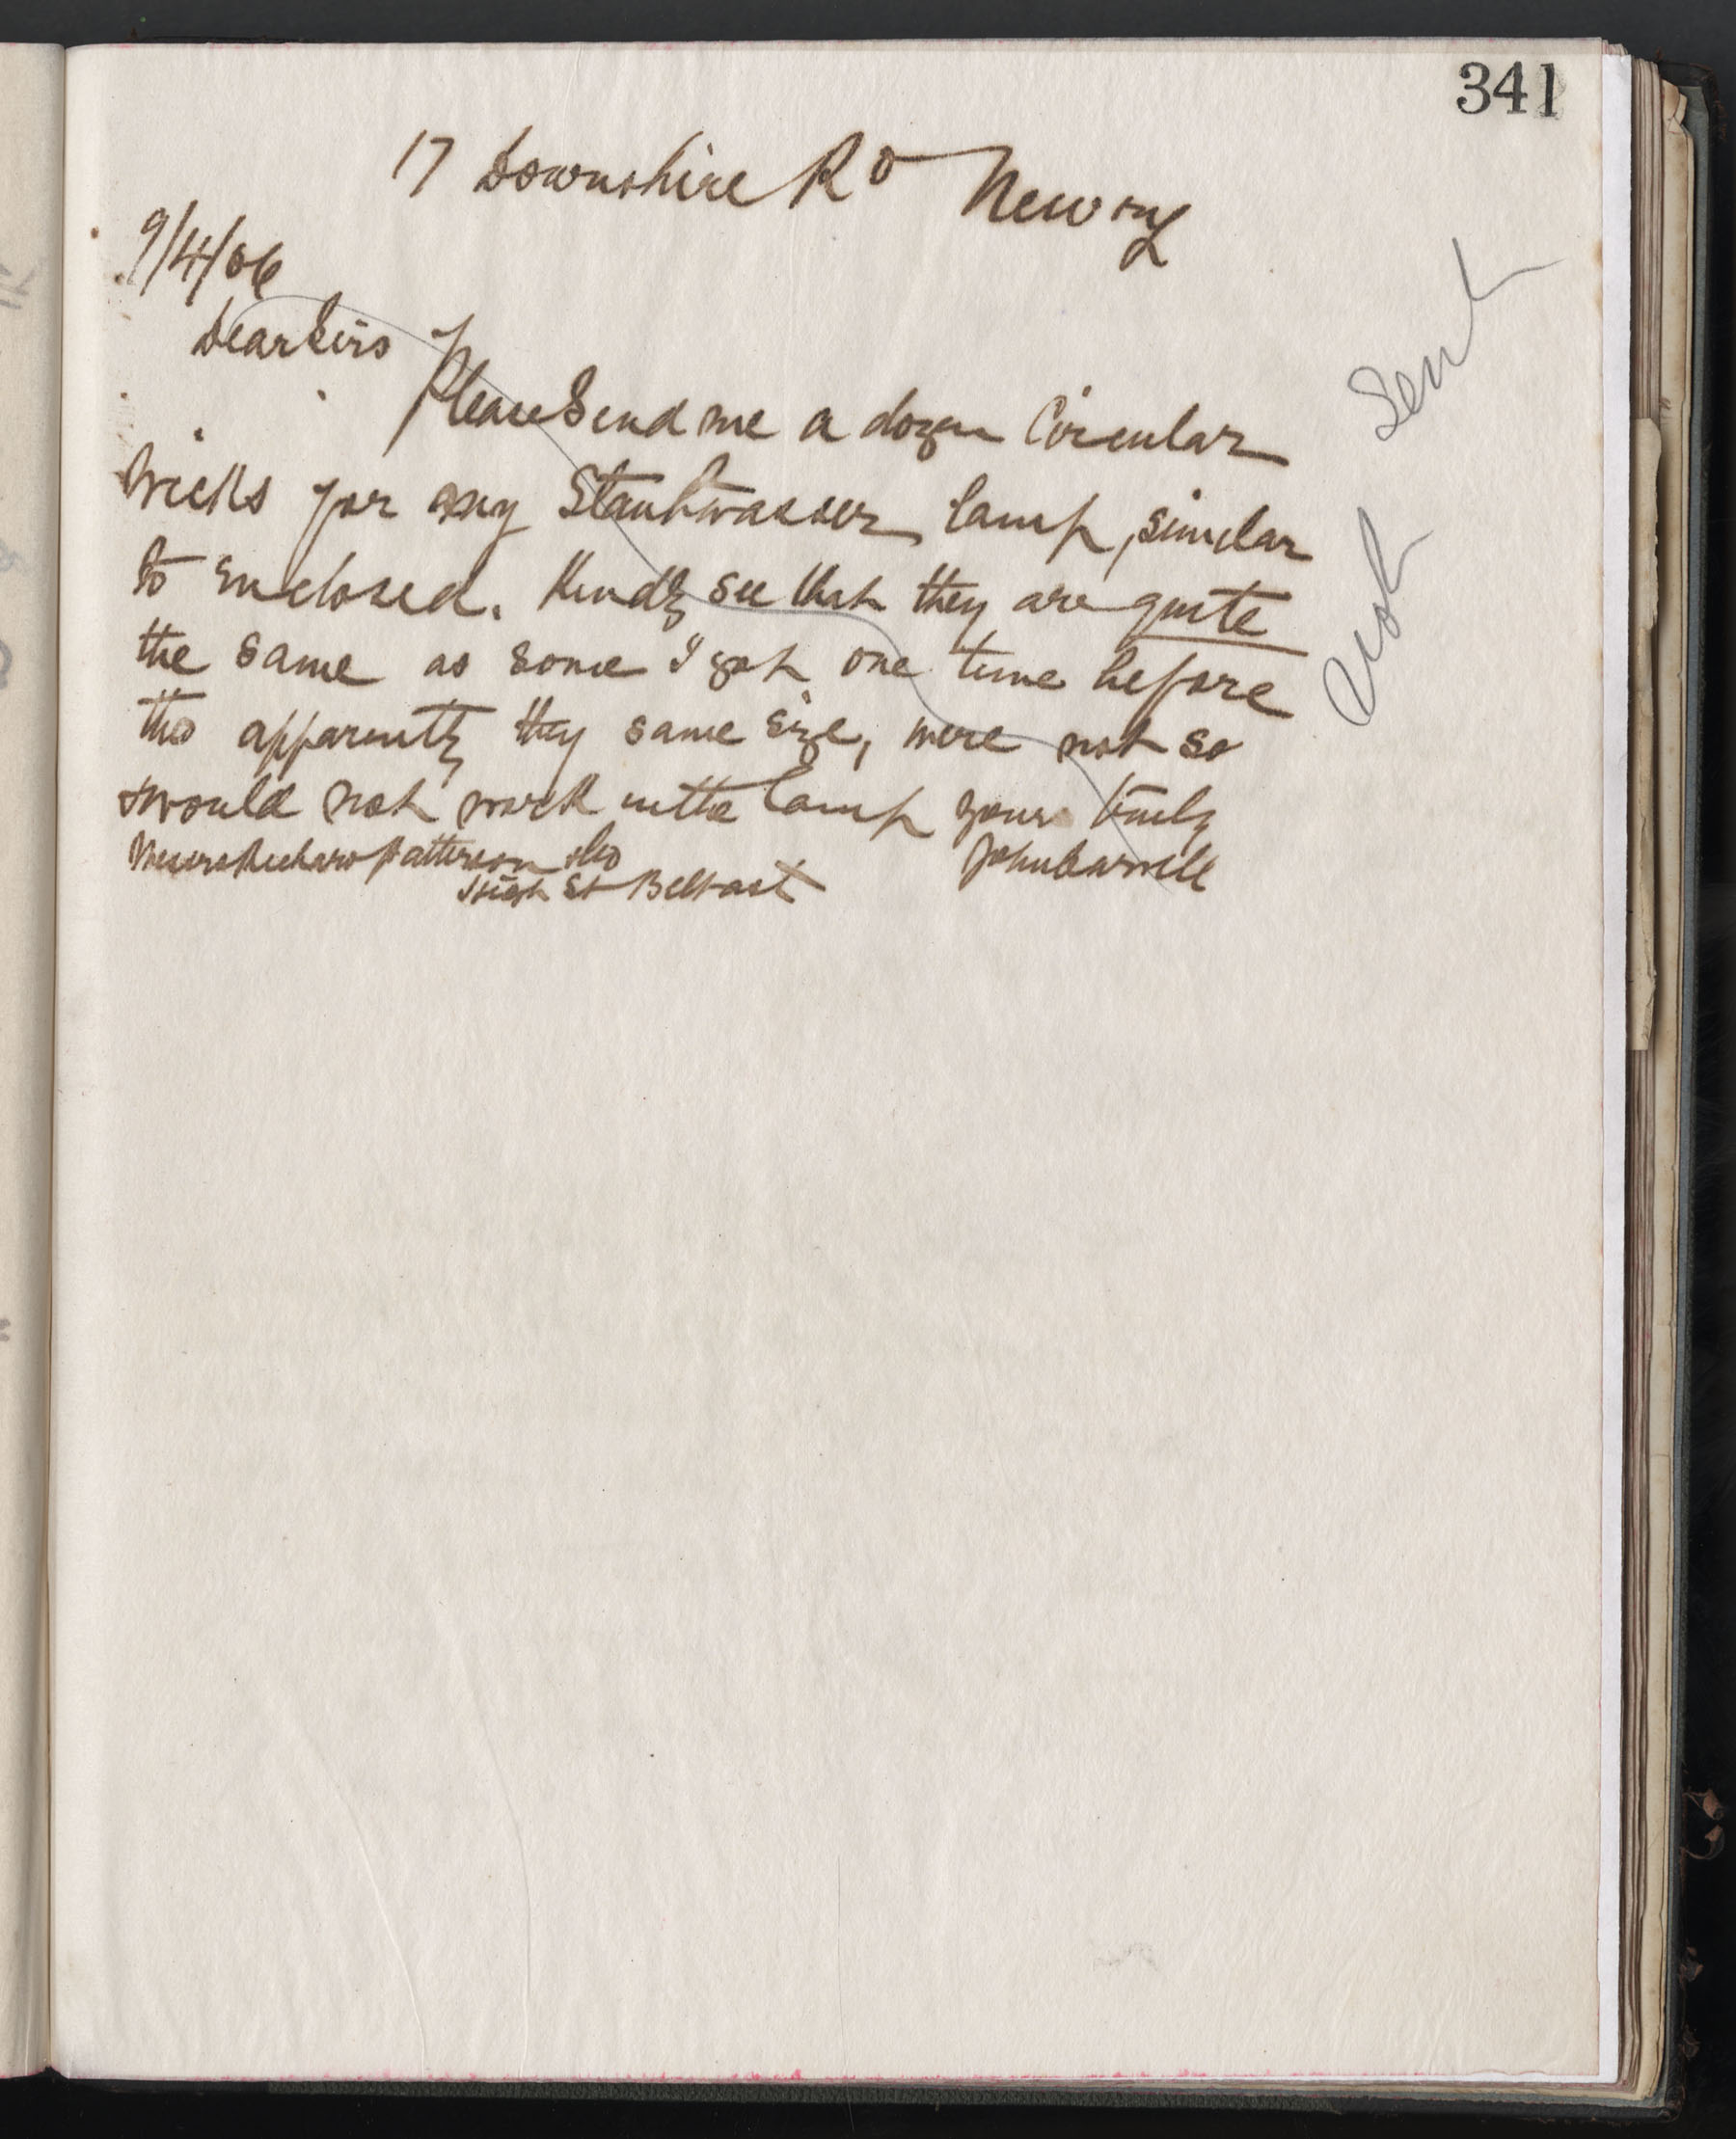 341
17 Downshire Rd Newry
9/4/06
Dear Sirs
Please Send me a dozen Circular
Wicks for my Stautwasser lamp, similar
to enclosed. Kindly see that they are quite
the same as some I got one time before
tho apparently they same size, were not so
& would not work in the lamp yours truly
Messrs Richard Patterson & Co John
High St Belfast
Not Sent